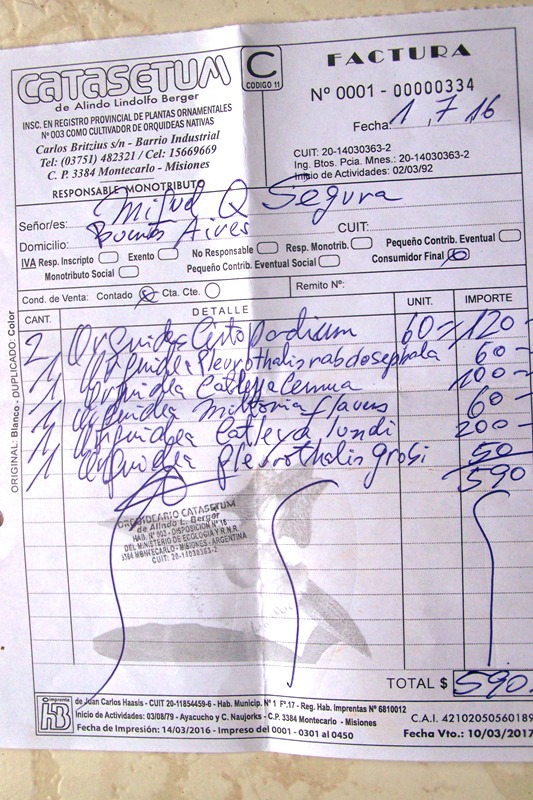 CATASETUM
de Alindo Lindolfo Berger
INSC. EN REGISTRO PROVINCIAL DE PLANTAS ORNAMENTALES
Nº 003 COMO CULTIVADOR DE ORQUIDEAS NATIVAS
Carlos Britzius s/n - Barrio Industrial
Tel: (03751) 482321 / Cel: 15669669
C. P. 3384 Montecarlo - Misiones
RESPONSABLE MONOTRIBUTO
C
CODIGO 11
FACTURA
Nº 0001 - 00000334
Fecha: 1 , 7 , 16
CUIT: 20-14030363-2
Ing. Btos. Pcia. Mnes.: 20-14030363-2
Inicio de Actividades: 02/03/92
Señor/es: Q Segura
Domicilio: Buenos Aires CUIT:
IVA Resp. Inscripto Exento No Responsable Resp. Monotrib. Pequeño Contrib. Eventual
Monotributo Social Pequeño Contrib. Eventual Social Consumidor Final
Cond. de Venta: Contado Cta. Cte. Remito Nº:
CANT. DETALLE UNIT. IMPORTE
2 Orquidea Cirtopodium 60= 120-
1 Orquidea Pleurothalis rabdosephala 60-
1 Orquidea Catleya Cernua 100-
1 Orquidea Miltonia flavens 60-
1 Orquidea Catleya lundi 200-
1 Orquidea Pleurothalis grosi 50
590
ORQUIDEARIO CATASETUM
de Alindo L. Berger
HAB. Nº 003 - DISPOSICION Nº 18
DEL MINISTERIO DE ECOLOGIA Y R.N.R.
3384 MONTECARLO - MISIONES - ARGENTINA
CUIT: 20-14030363-2
TOTAL $ 590-
ORIGINAL: Blanco - DUPLICADO: Color
imprenta
HB
de Juan Carlos Haasis - CUIT 20-11854459-6 - Hab. Municip. Nº 1 Fº.17 - Reg. Hab. Imprentas Nº 6810012
Inicio de Actividades: 03/08/79 - Ayacucho y C. Naujorks - C.P. 3384 Montecarlo - Misiones
Fecha de Impresión: 14/03/2016 - Impreso del 0001 - 0301 al 0450
C.A.I. 42102050560189
Fecha Vto.: 10/03/2017